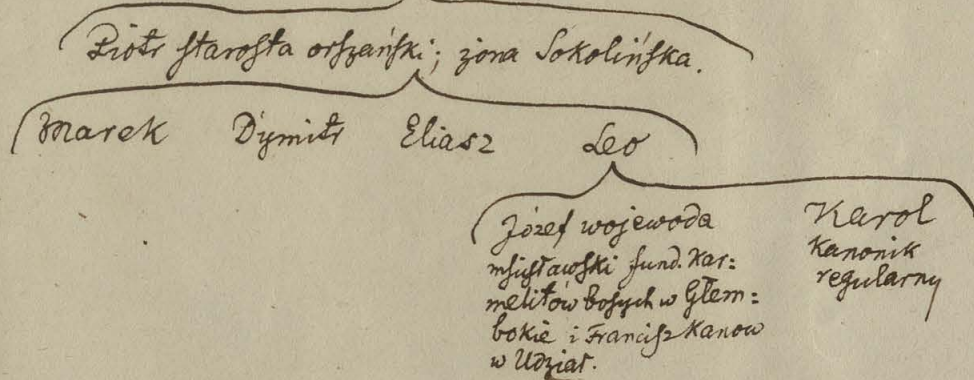 Piotr starosta orszański; żona Sokolińska.
Marek Dymitr Eliasz Leo
Józef wojewoda
mścisławski fund. Kar:
melitów bosych w Głem:
bokie i Franciszkanow
w Udział.
Karol
Kanonik
regularny